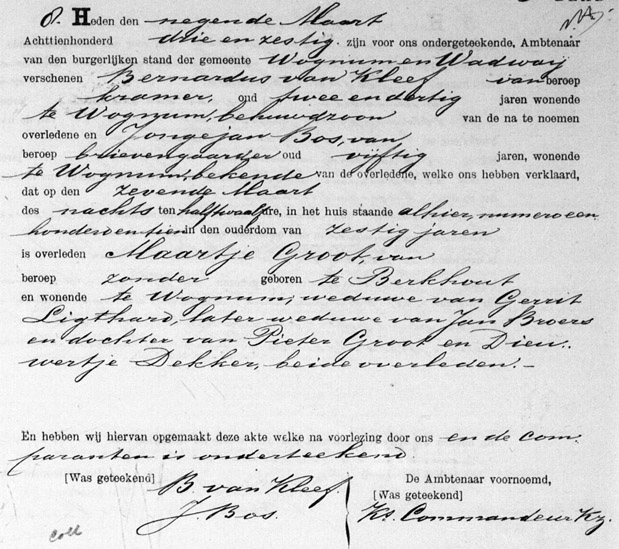 8. Heden den negende Maart
Achttienhonderd drie en zestig zijn voor ons ondergeteekende, Ambtenaar
van den burgerlijken stand der gemeente Wognum en Wadway
verschenen Bernardus van Kleef van beroep
kramer, oud twee en dertig jaren wonende
te Wognum, behuwdzoon van de na te noemen
overledene en Jonge jan Bos, van
beroep brievengaarder oud vijftig jaren, wonende
te Wognum, bekende van de overledene, welke ons hebben verklaard,
dat op den zevende Maart
des nachts ten half twaalf ure, in het huis staande alhier, numero een
honderd en tien in den ouderdom van zestig jaren
is overleden Maartje Groot, van
beroep zonder geboren te Berkhout
en wonende te Wognum, weduwe van Gerrit
Ligthard, later weduwe van Jan Broers
en dochter van Pieter Groot en Dieu..
wertje Dekker, beide overleden. —
En hebben wij hiervan opgemaakt deze akte welke na voorlezing door ons en de com..
paranten is onderteekend.
[Was geteekend] B. van Kleef
J. Bos.
De Ambtenaar voornoemd,
[Was geteekend]
Ks. Commandeur Kz.
Coll